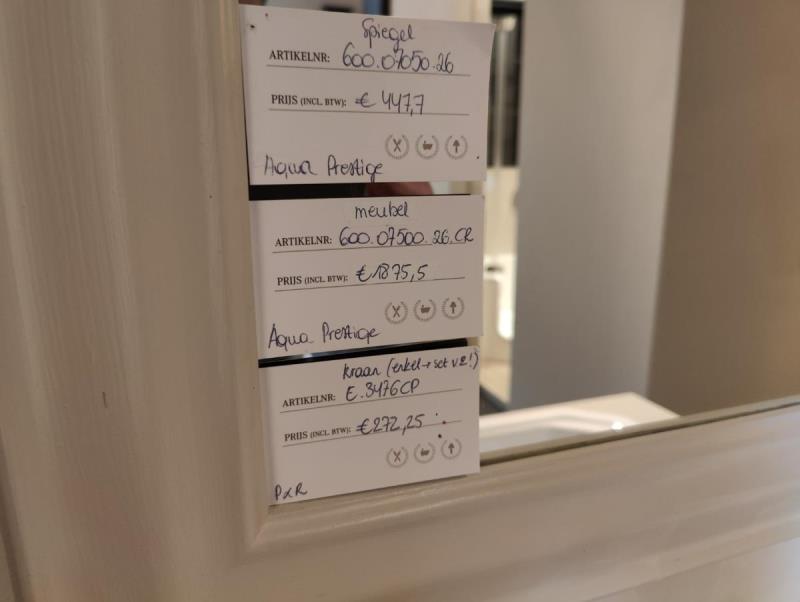 Spiegel
ARTIKELNR: 600.07050.26
PRIJS (INCL. BTW): € 447,7
Aqua Prestige
meubel
ARTIKELNR: 600.07500.26.CR
PRIJS (INCL. BTW): € 1875,5
Aqua Prestige
kraan (enkel → set v 2!)
ARTIKELNR: E.3476CP
PRIJS (INCL. BTW): € 272,25
P&R